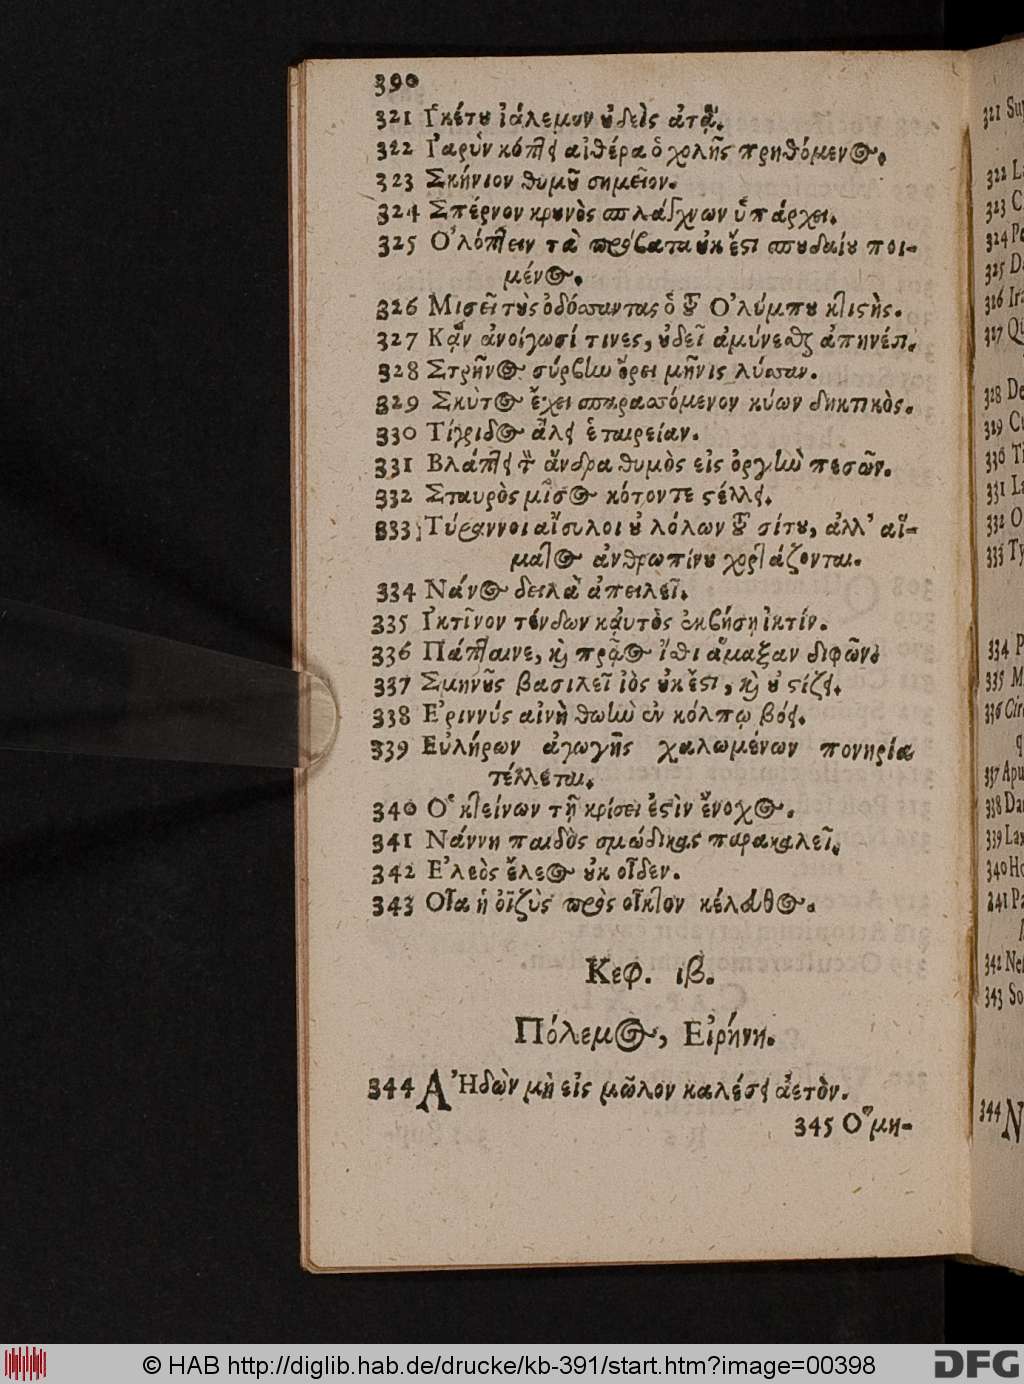 390
321 Ἱκέτου ἰάλεμον οὐδεὶς ἀτᾷ.
322 Γαρὺν κόπτει αἰθέρα ὁ χολῆς πρηθόμενος.
323 Σκήνιον θυμοῦ σημεῖον.
324 Στέρνον κρουνὸς σπλάγχνων ὑπάρχει.
325 Ὀλόπτειν τὰ πρόβατα οὐκ ἔστι σπουδαίου ποι-
μένος.
326 Μισεῖ τοὺς ὀδύσσαντας ὁ τοῦ Ὀλύμπου κτιστὴς.
327 Κᾂν ἀνοίγωσί τινες, οὐδεῖ ἀμύνεσθαι ἀπηνέστ.
328 Στρῆνος σύρβην ὄρει μῆνις λύσσαν.
329 Σκύτος ἔχει σπαρασσόμενον κύων δηκτικὸς.
330 Τίγριδος ἄλει ἑταιρείαν.
331 Βλάπτει τὸν ἄνδρα θυμὸς εἰς ὀργὴν πεσῶν.
332 Σταυρὸς μῖσος κότοντε στέλλει.
333 Τύραννοι αἴσυλοι οὐ λόλων τοῦ σίτου, ἀλλ’ αἵ-
ματος ἀνθρωπίνου χορτάζονται.
334 Νάνος δειλὰ ἀπειλεῖ.
335 Ἰκτῖνον τένδων καὐτὸς ἐκβήσῃ ἰκτίν.
336 Πάπταινε, καὶ πρᾷος ἴθι ἅμαξαν διφῶν
337 Σμηνοῦς βασιλεῖ ἰὸς οὐκ ἔστι, καὶ οὐ στίζει.
338 Ἐριννύς αἰνὴ θωὴν ἐν κόλπῳ βόει.
339 Εὐλήρων ἀγωγῆς χαλωμένων πονηρία
τέλλεται.
340 Ὁ κτείνων τῇ κρίσει ἐστὶν ἔνοχος.
341 Νάννη παιδὸς σμώδικας παρακαλεῖ.
342 Ἐλεὸς ἔλεος οὐκ οἶδεν.
343 Οἵα ἡ ὀϊζὺς πρὸς οἶκτον κέλευθος.
Κεφ. ιβ.
Πόλεμος, Εἰρήνη.
344 ἈΗδὼν μὴ εἰς μῶλον καλέσει ἀετὸν.
345 Ὅμη-
321
322
323
324
325
326
327
328 De
329
330
331
332
333
334
335
336
337 Apu
338
339 Lax
340
341
342
343 So
344
© HAB http://diglib.hab.de/drucke/kb-391/start.htm?image=00398
DFG